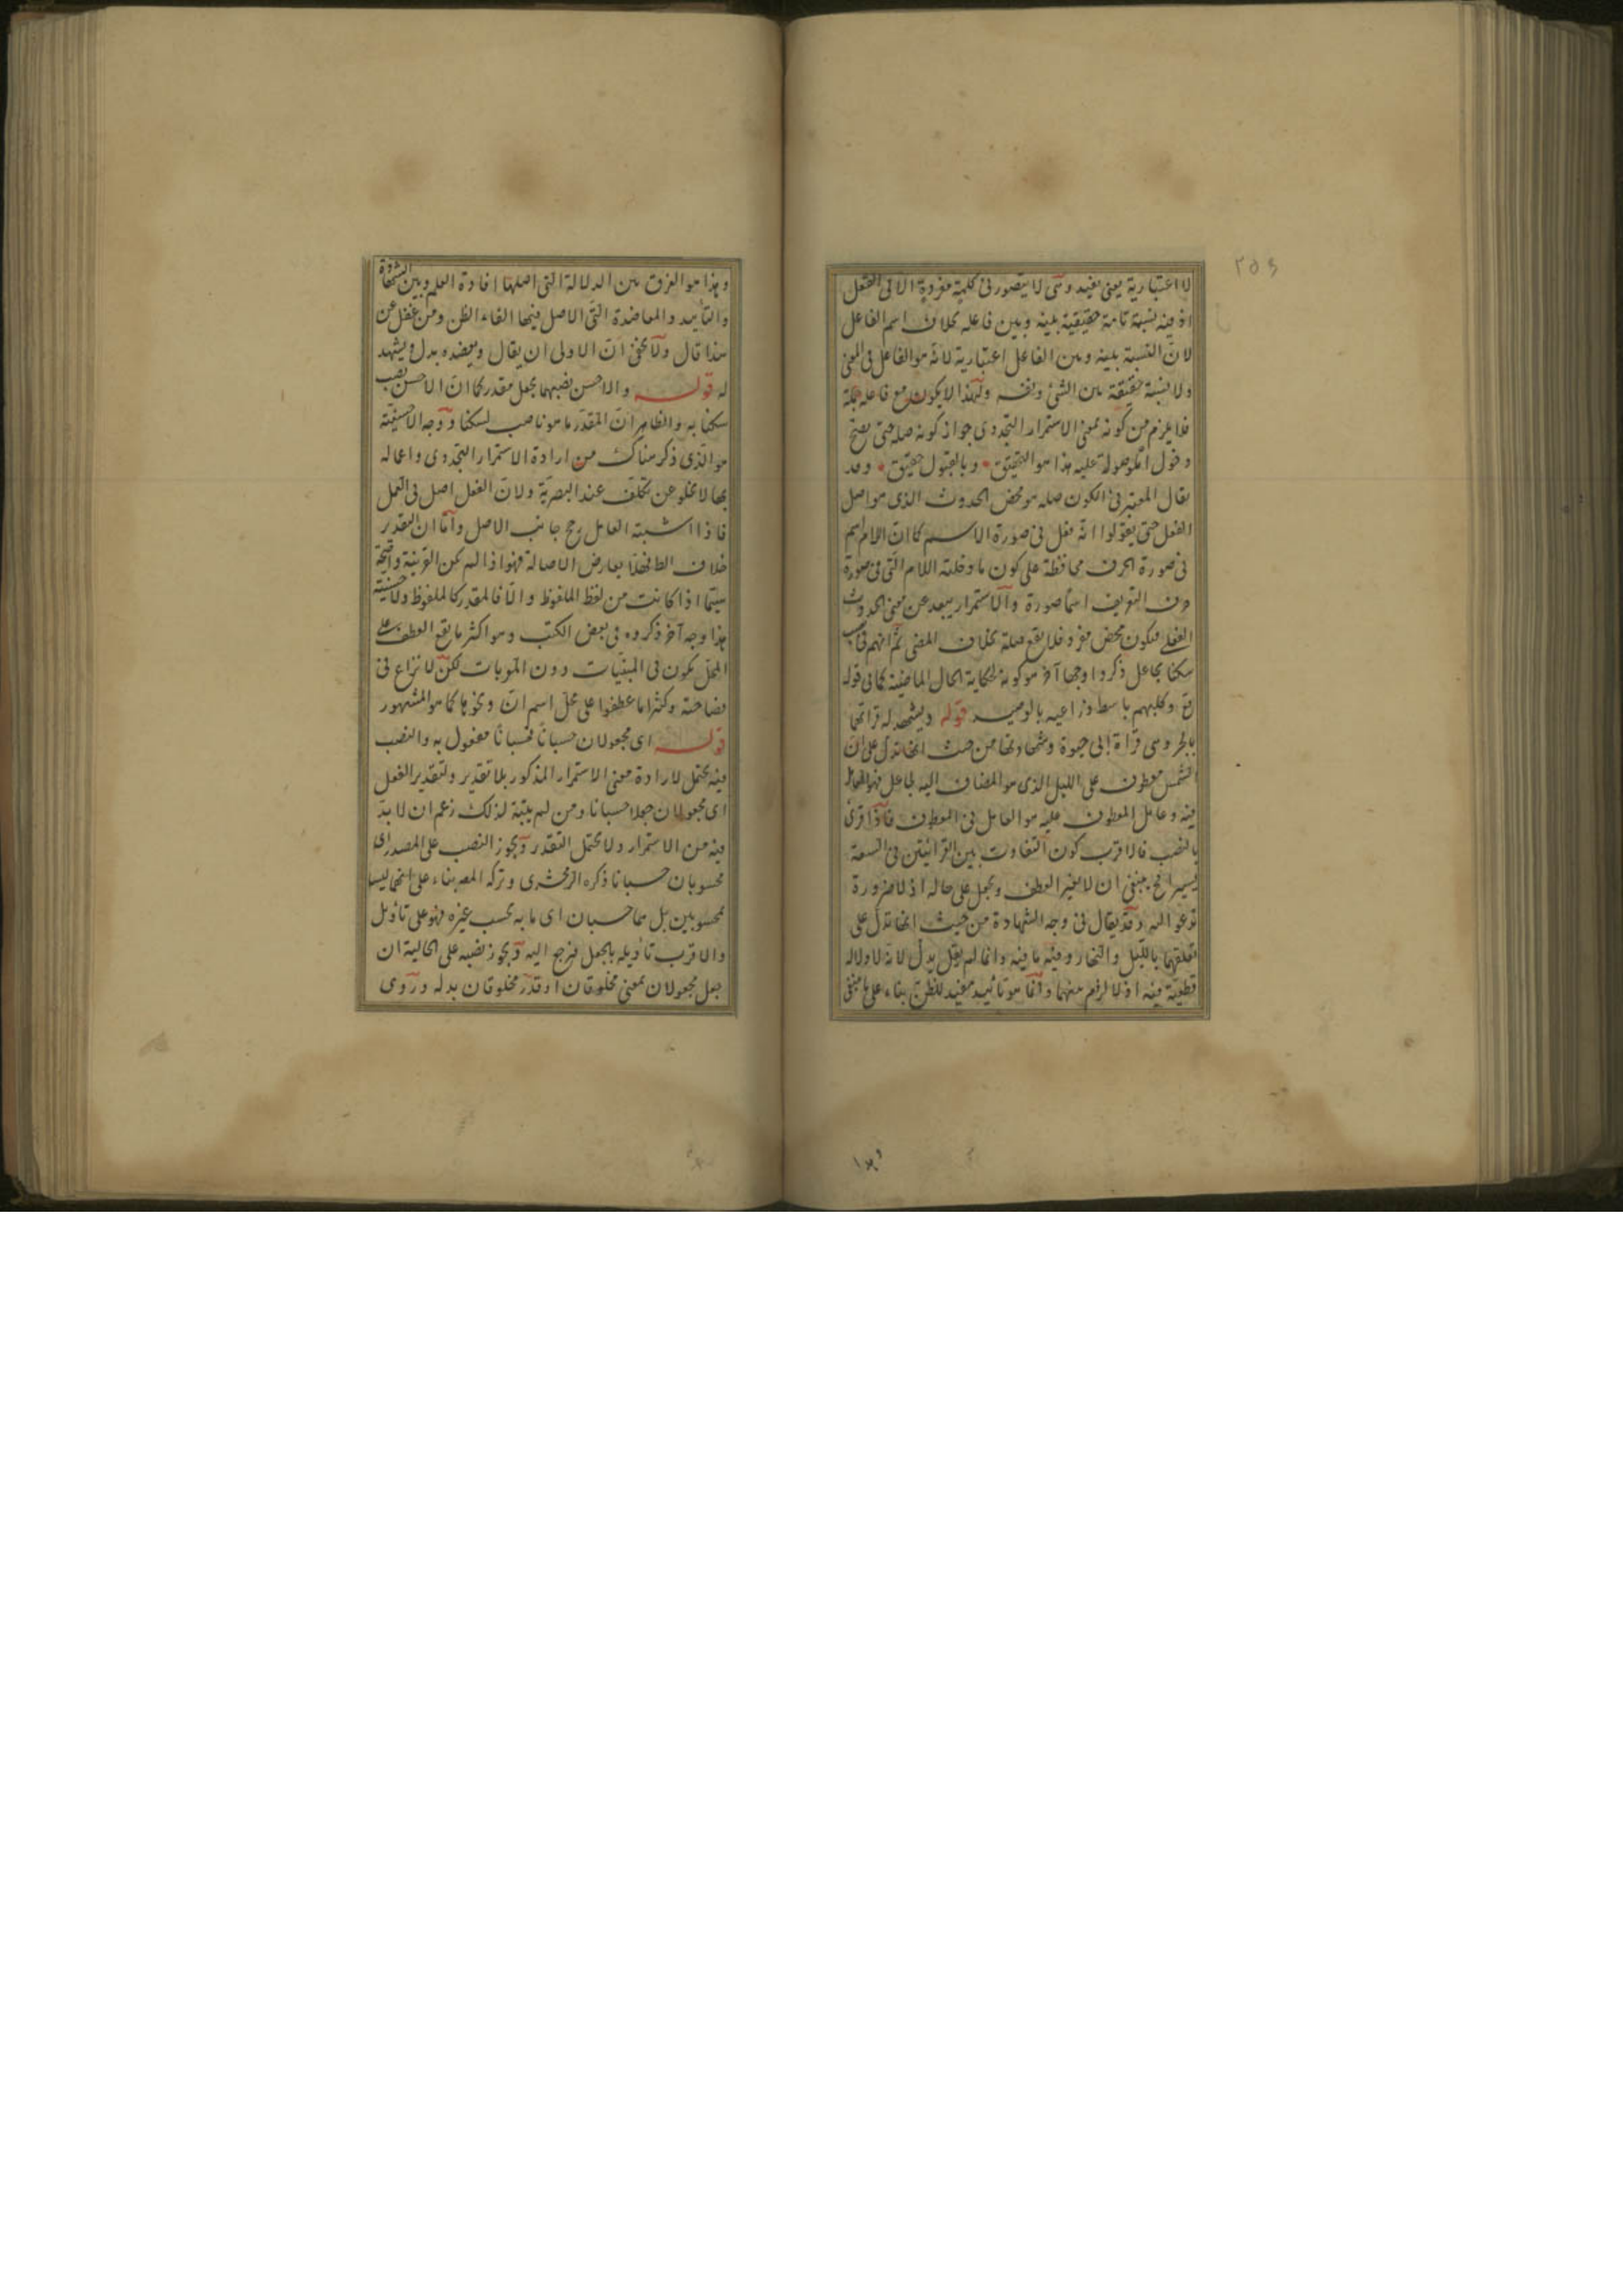 ٢٥٤
لا اعتبارية يعنى يفيد وهى لا يتصور فى كلمة مفردة الا فى الفعل
اذ فيه نسبة تامة حقيقية بينه وبين فاعله بخلاف اسم الفاعل
لان النسبة بينه وبين الفاعل اعتبارية لانه هو الفاعل فى المعنى
ولا نسبة حقيقة بين الشئ ونفسه ولهذا لا يكون مع فاعله جملة
فلا يلزم من كونه بمعنى الاستمرار التجددى جواز كونه صلة حتى يصح
دخول الموصولة عليه هذا هو التحقيق وبالقبول حقيق وقد
يقال المعتبر فى الكون صلة هو محض الحدوث الذى هو اصل
الفعل حتى يقولوا انه فعل فى صورة الاسم كما ان اللام اسم
فى صورة الحرف محافظة على كون ما دخلته اللام التى فى صورة
حرف التعريف اسما صورة والاستمرار يبعد عن معنى الحدوث
الفعلى فيكون محض مفرد فلا يقع صلة بخلاف المضى ثم انهم فى نصب
سكنا بجاعل ذكروا وجها آخر هو كونه لحكاية الحال الماضية كما فى قوله
تع وكلبهم باسط ذراعيه بالوصيد قوله ويشهد له قراتهما
بالجر وهى قراة ابى حيوة وشهادتها من حيث انها تدل على ان
الشمس معطوف على الليل الذى هو المضاف اليه لجاعل فهو العامل
فيه وعامل المعطوف عليه هو العامل فى المعطوف فاذا قرئ
بالنصب فالاقرب كون التفاوت بين القرائتين فى السبعة
يسيرا فح ينبغى ان لا يغير العطف ويجعل على حاله اذ لا ضرورة
تدعو اليه وقد يقال فى وجه الشهادة من حيث انها تدل على
تعلقهما بالليل والنهار وفيه ما فيه وانما لم يقل يدل لانه لا دلالة
قطعية فيه اذ لا لزوم بينهما وانما هو تائيد مفيد للظن بناء على ما ينبغى
وهذا
وهذا هو الفرق بين الدلالة التى اصلها افادة العلم وبين الشهادة
والتأييد والمعاضدة التى الاصل فيها القاء الظن ومن غفل عن
هذا قال ولا يخفى ان الاولى ان يقال ويعضده بدل ويشهد
له قوله والاحسن نصبهما بجعل مقدر كما ان الاحسن نصب
سكنا به والظاهر ان المقدر ما هو ناصب لسكنا ووجه الاحسنية
هو الذى ذكر هناك من ارادة الاستمرار التجددى واعماله
بها لا يخلو عن تكلف عند البصرية ولان الفعل اصل فى العمل
فاذا اشتبه العامل رجح جانب الاصل واما ان التقدير
خلاف الظ فهلا يعارض الاصالة فهو اذا لم يكن القرينة واضحة
سيما اذا كانت من لفظ الملفوظ والا فالمقدر كالملفوظ ولاحسنية
هذا وجه آخر ذكروه فى بعض الكتب وهو اكثر ما يقع العطف على
المحل يكون فى المبنيات دون المعربات لكن لا نزاع فى
فصاحته وكثيرا ما عطفوا على محل اسم ان ونحوها كما هو المشهور
قوله اى مجعولان حسبانا فحسبانا مفعول به والنصب
فيه يحتمل لارادة معنى الاستمرار المذكور بلا تقدير ولتقدير الفعل
اى مجعولان جعلا حسبانا ومن لم يتنبه لذلك زعم ان لا بد
فيه من الاستمرار ولا يحتمل التقدر ويجوز النصب على المصدر اى
محسوبان حسبانا ذكره الزمخشرى وتركه المصر بناء على انهما ليسا
بمحسوبين بل هما حسبان اى ما به يحسب غيره فهو على تأويل
والاقرب تأويله بالجعل فرجح اليه ويجوز نصبه على الحالية ان
جعل مجعولان بمعنى مخلوقان او قدر مخلوقان بدله وروى